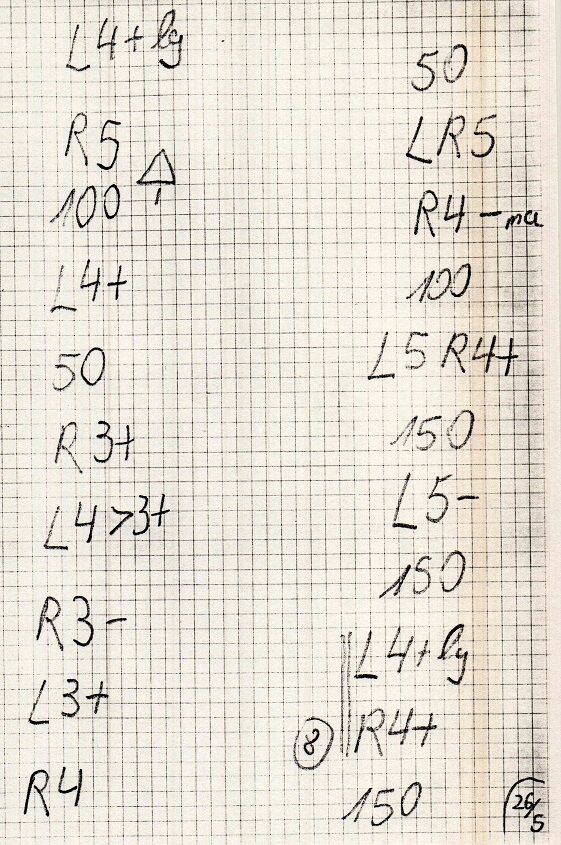 L4+lg
R5
100
L4+
50
R3+
L4>3+
R3-
L3+
R4
50
LR5
R4-ma
100
L5 R4+
150
L5-
150
L4+lg
8 R4+
150
26/5